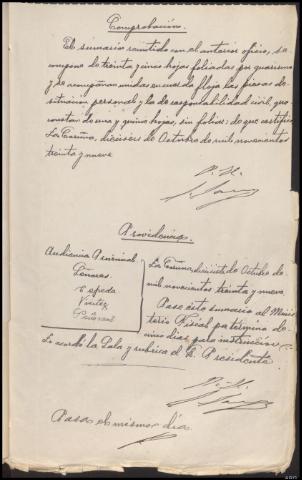 Comprobación.
El sumario remitido con el anterior oficio, se
compone de treinta y cinco hojas foliadas por
y se acompañan unidas en cuerda floja las piezas de
situacion personal y la de responsabilidad civil, que
constan de una y quince hojas, sin foliar; de que certifico
La Coruña, dieciseis de Octubre de mil novecientos
treinta y nueve
P. H.
Providencia.
Audiencia Provincial
Señores.
La Coruña, dieciseis de Octubre de
mil novecientos treinta y nueve
Pase este sumario al Minis-
terio Fiscal por termino de
cinco dias para instruccion
Lo acordó la Sala y rubrica el Sr. Presidente.
P. H.
Pasa el mismo dia.